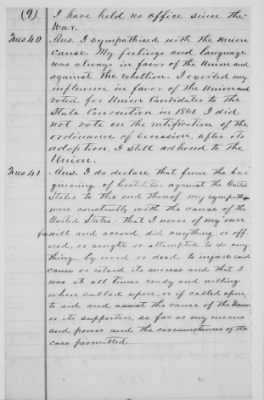 (9). I have held no office since the
War.
Ques 40. Ans. I sympathised with the Union
cause. My feelings and language
was always in favor of the Union and
against the rebellion. I exerted my
influence in favor of the Union and
voted for Union Candidates to the
State Convention in 1861. I did
not vote on the ratification of the
ordinance of Secession, after its
adoption, I still adhered to the
Union.
Ques 41. Ans. I do declare that from the be-
ginning of hostilities against the United
States to the end thereof my sympathies
were constantly with the cause of the
United States; that I never of my own
free will and accord did anything, or off-
ered, or sought or attempted to do any
thing, by word or deed to injure said
cause or retard its success and that I
was at all times ready and willing
when called upon, or if called upon,
to aid and assist the cause of the Union
or its supporters, so far as my means
and power and the circumstances of the
case permitted.